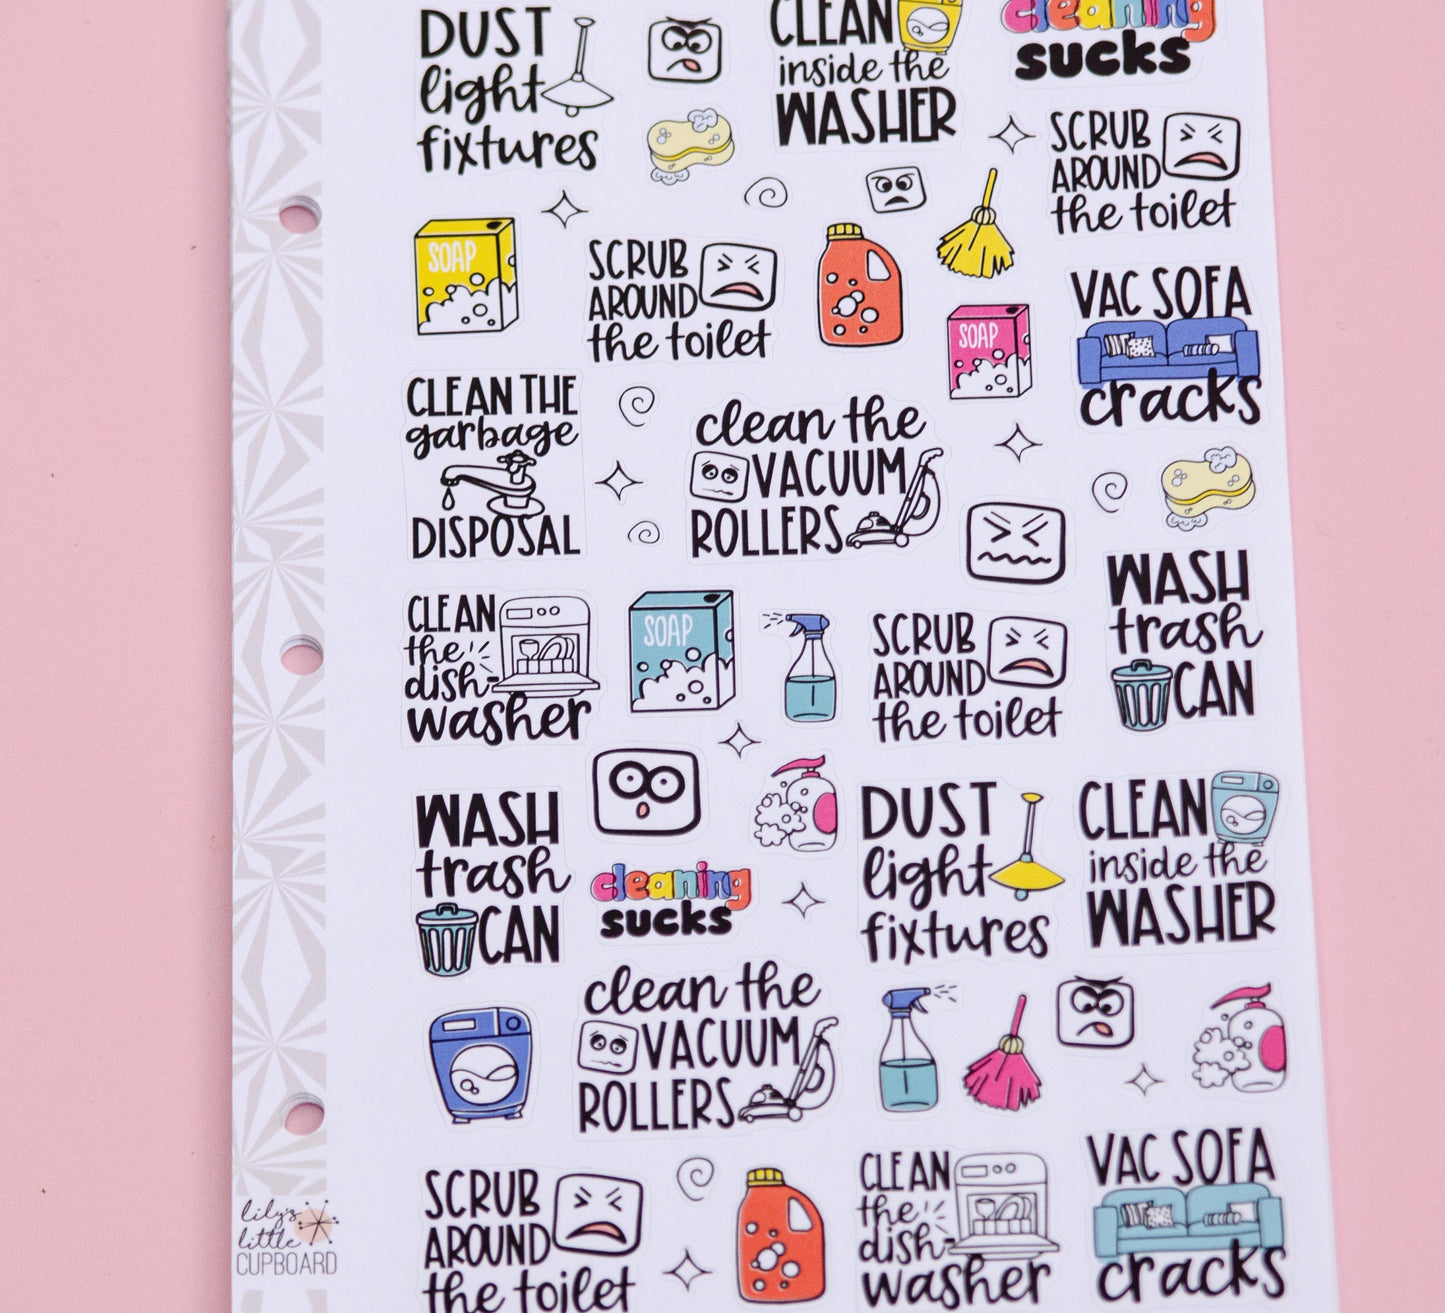 DUST
light
fixtures
CLEAN
inside the
WASHER
cleaning
sucks
SCRUB
AROUND
the toilet
SOAP
SCRUB
AROUND
the toilet
SOAP
VAC SOFA
cracks
CLEAN THE
garbage
DISPOSAL
clean the
VACUUM
ROLLERS
CLEAN
the
dish-
washer
SOAP
SCRUB
AROUND
the toilet
WASH
trash
CAN
WASH
trash
CAN
cleaning
sucks
DUST
light
fixtures
CLEAN
inside the
WASHER
clean the
VACUUM
ROLLERS
SCRUB
AROUND
the toilet
CLEAN
the
dish-
washer
VAC SOFA
cracks
lily's
little
CUPBOARD